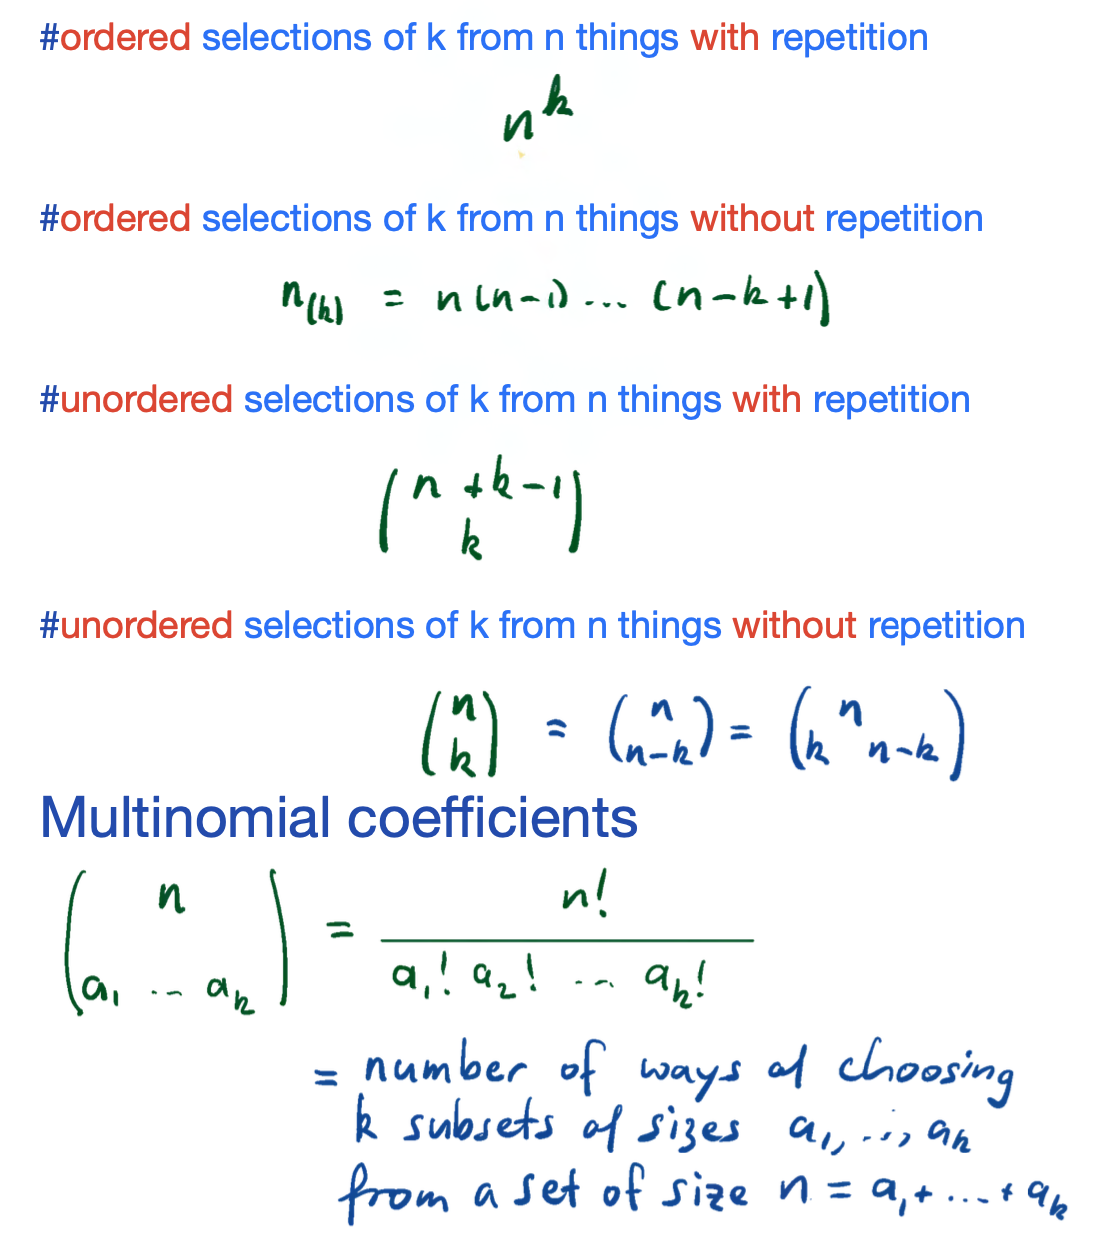 #ordered selections of k from n things with repetition
n^k
#ordered selections of k from n things without repetition
n_(k) = n(n-1) ... (n-k+1)
#unordered selections of k from n things with repetition
(n+k-1
k)
#unordered selections of k from n things without repetition
(n
k) = (n
n-k) = (n
k n-k)
Multinomial coefficients
(n
a_1 ... a_k) = n! / a_1! a_2! ... a_k!
= number of ways of choosing
k subsets of sizes a_1, ..., a_k
from a set of size n = a_1 + ... + a_k